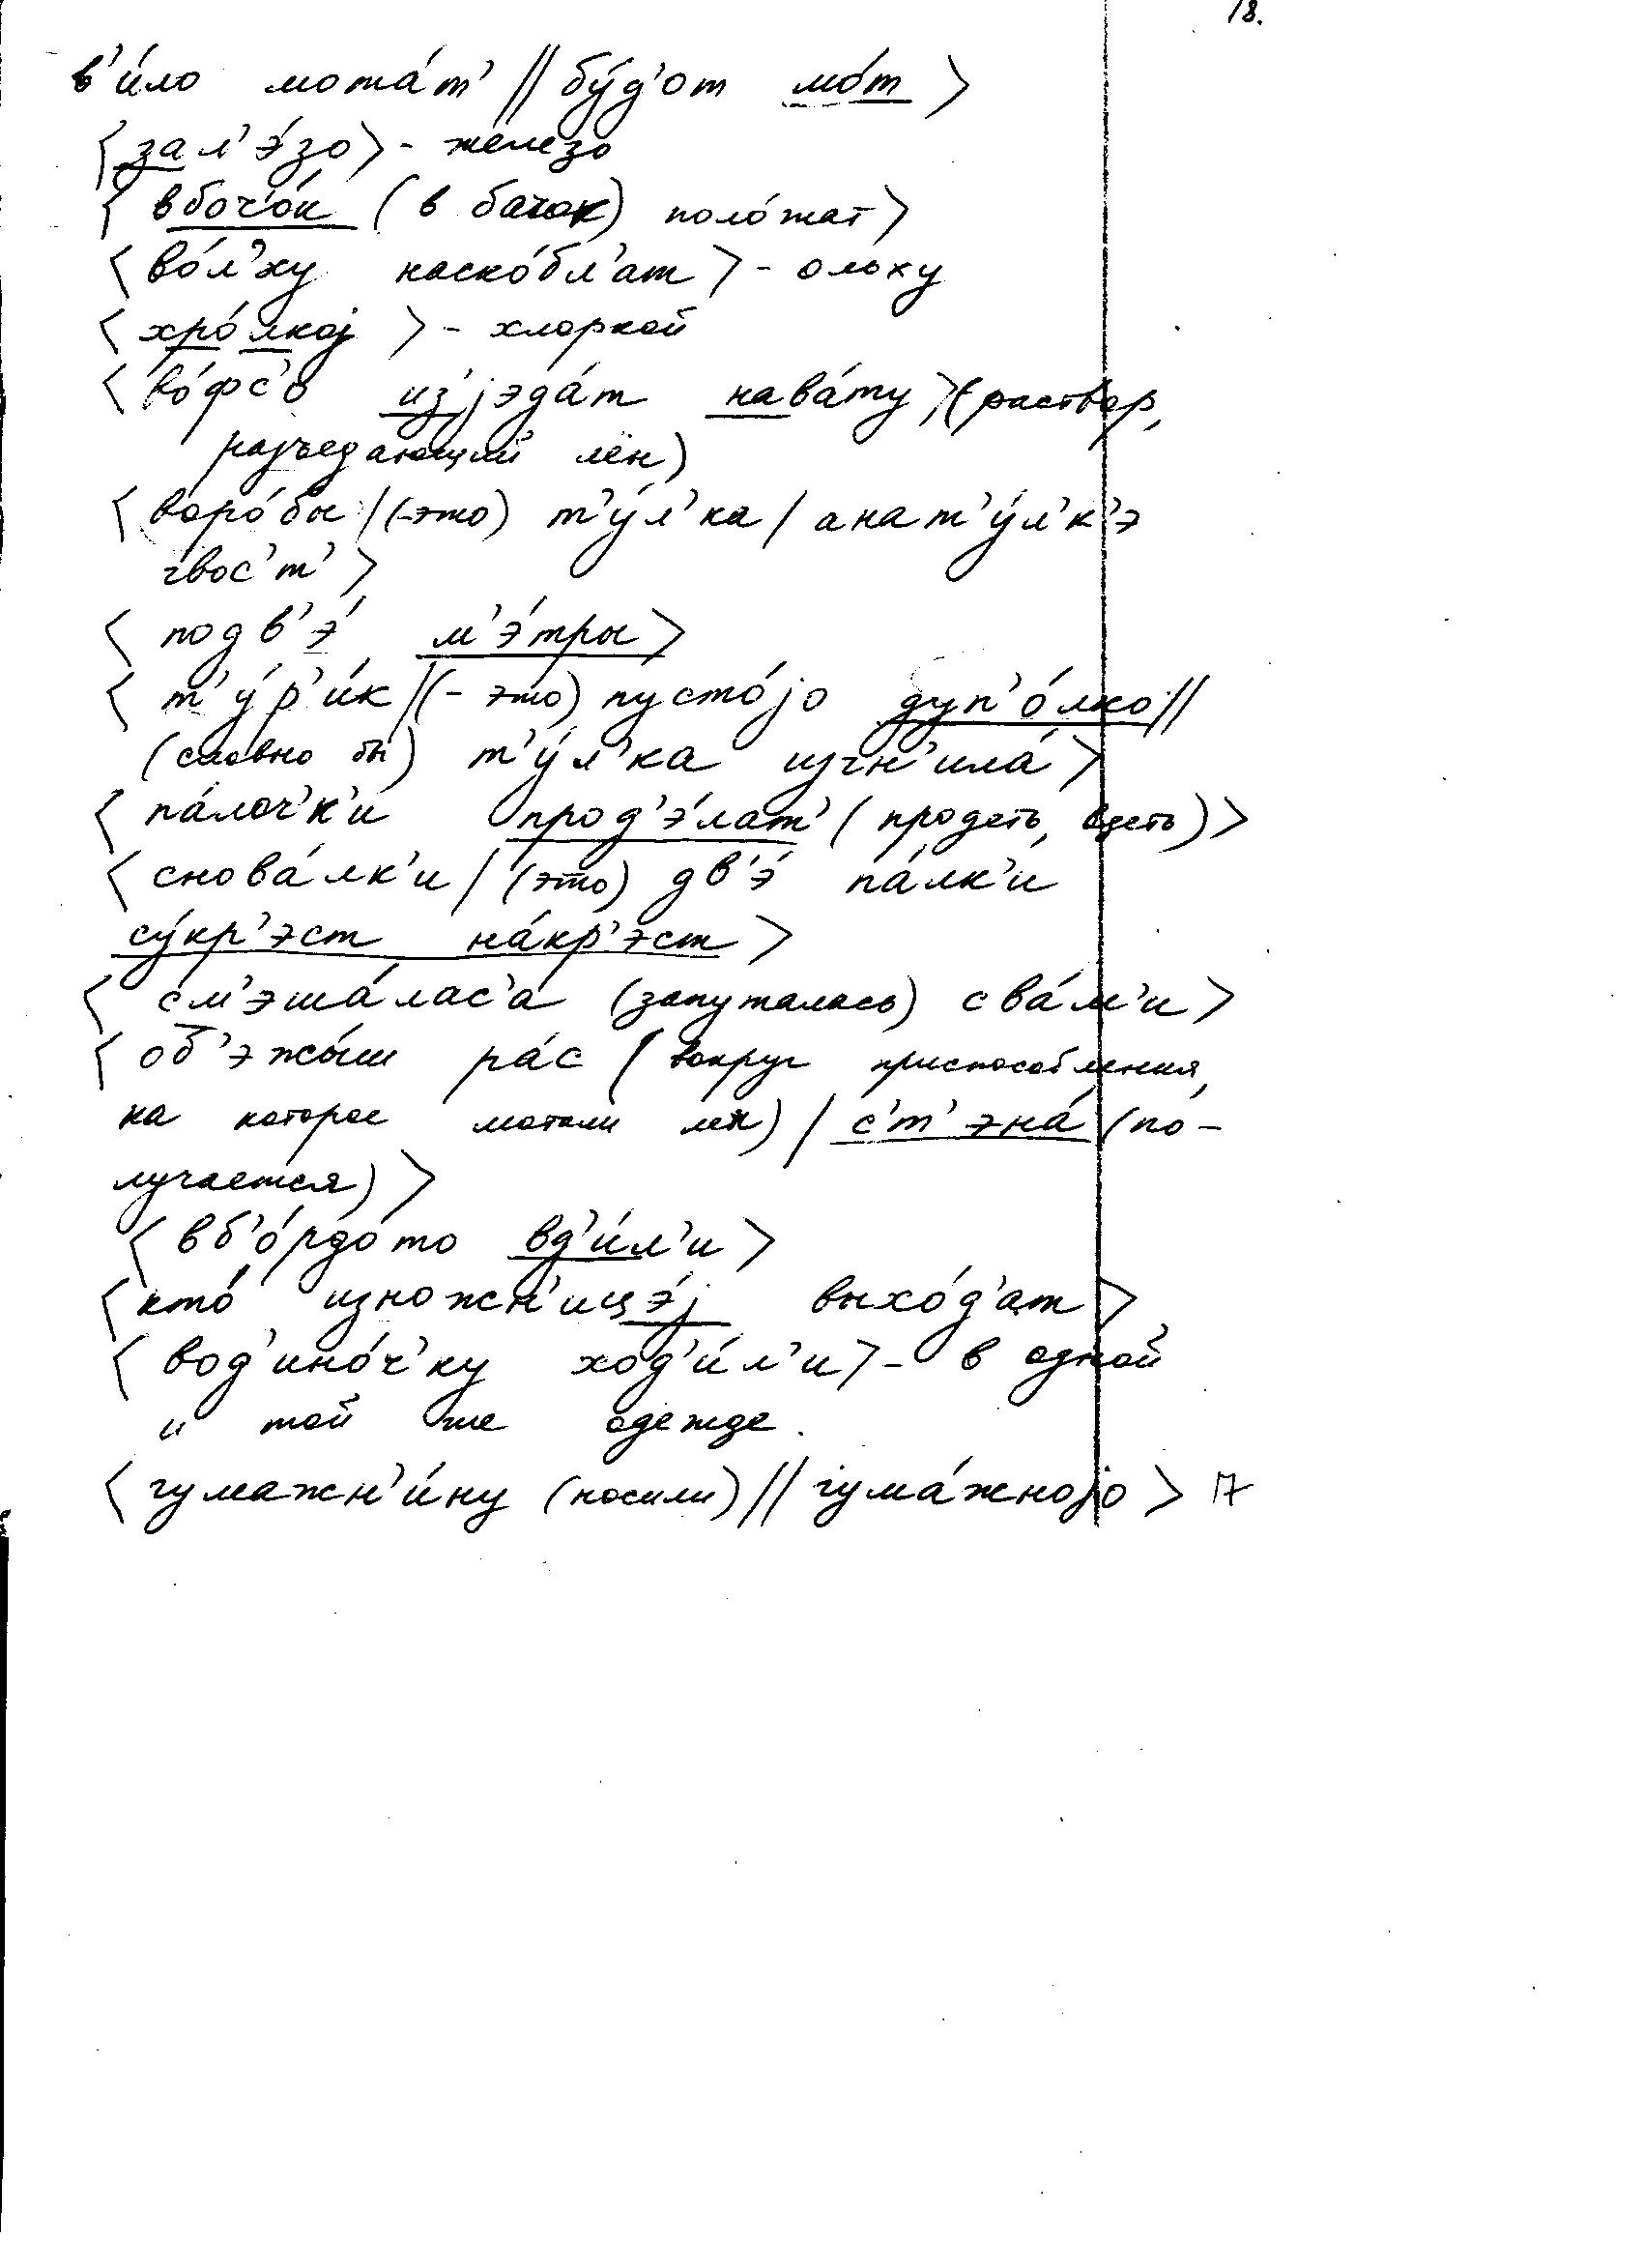 18.
в'и́ло мота́т' || бу́д'от мо́т >
<зал'э́зо> - железо
< вбочо́к (в бачок) поло́жат>
< во́л'ху наско́бл'ат> - ольху
< хро́лкоj > - хлоркой
< во́фс'о из'jэда́т нава́ту> (раствор,
разъедающий лён)
< воро́бы | (-это) т'у́л'ка | анат'у́л'к'э
гвос'т' >
< подв'э́ м'э́тры>
< т'у́р'и́к || (- это) пусто́jо дуп'о́лко ||
(словно бы) т'у́л'ка изгн'ила́ >
< па́лоч'к'и прод'э́лат' (продеть, вдеть) >
< снова́лк'и | (это) дв'э́ па́лк'и
су́кр'эст на́кр'эст >
< см'эша́лас'а (запуталась) с ва́м'и >
< об'эжы́ш ра́с (вокруг приспособления,
на которое мотали лён) | с'т'эна́ (по-
лучается) >
< вб'о́рдо то вд'и́л'и >
< кто́ изножн'ицэ́j выхо́д'ат >
< вод'ино́ч'ку ход'и́л'и > - в одной
и той же одежде.
< гумажн'и́ну (носили) || гума́жноjо > 17